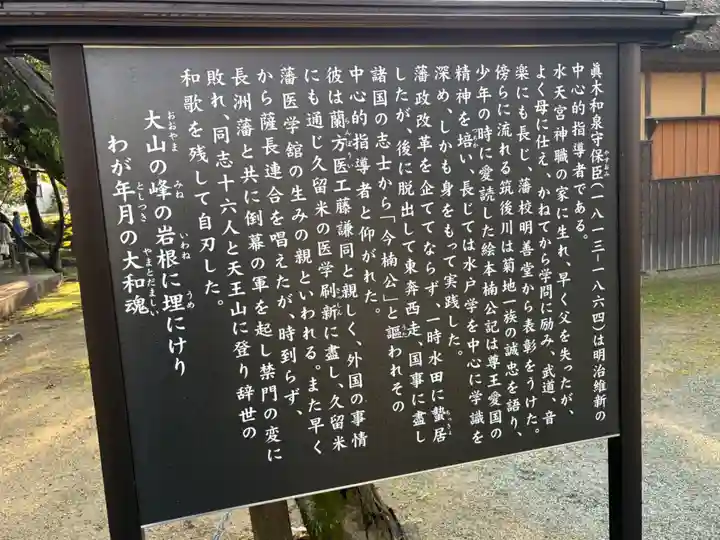 眞木和泉守保臣（一八一三―一八六四）は明治維新の
中心的指導者である。
水天宮神職の家に生れ、早く父を失ったが、
よく母に仕え、かねてから学問に励み、武道、音
楽にも長じ、藩校明善堂から表彰をうけた。
傍らに流れる筑後川は菊地一族の誠忠を語り、
少年の時に愛読した絵本楠公記は尊王愛国の
精神を培い、長じては水戸学を中心に学識を
深め、しかも身をもって実践した。
藩政改革を企ててならず、一時水田に蟄居
したが、後に脱出して東奔西走、国事に盡し
諸国の志士から「今楠公」と謳われその
中心的指導者と仰がれた。
彼は蘭方医工藤謙同と親しく、外国の事情
にも通じ久留米の医学刷新に盡し、久留米
藩医学館の生みの親といわれる。また早く
から薩長連合を唱えたが、時到らず、
長洲藩と共に倒幕の軍を起し禁門の変に
敗れ、同志十六人と天王山に登り辞世の
和歌を残して自刃した。
大山の峰の岩根に埋にけり
わが年月の大和魂